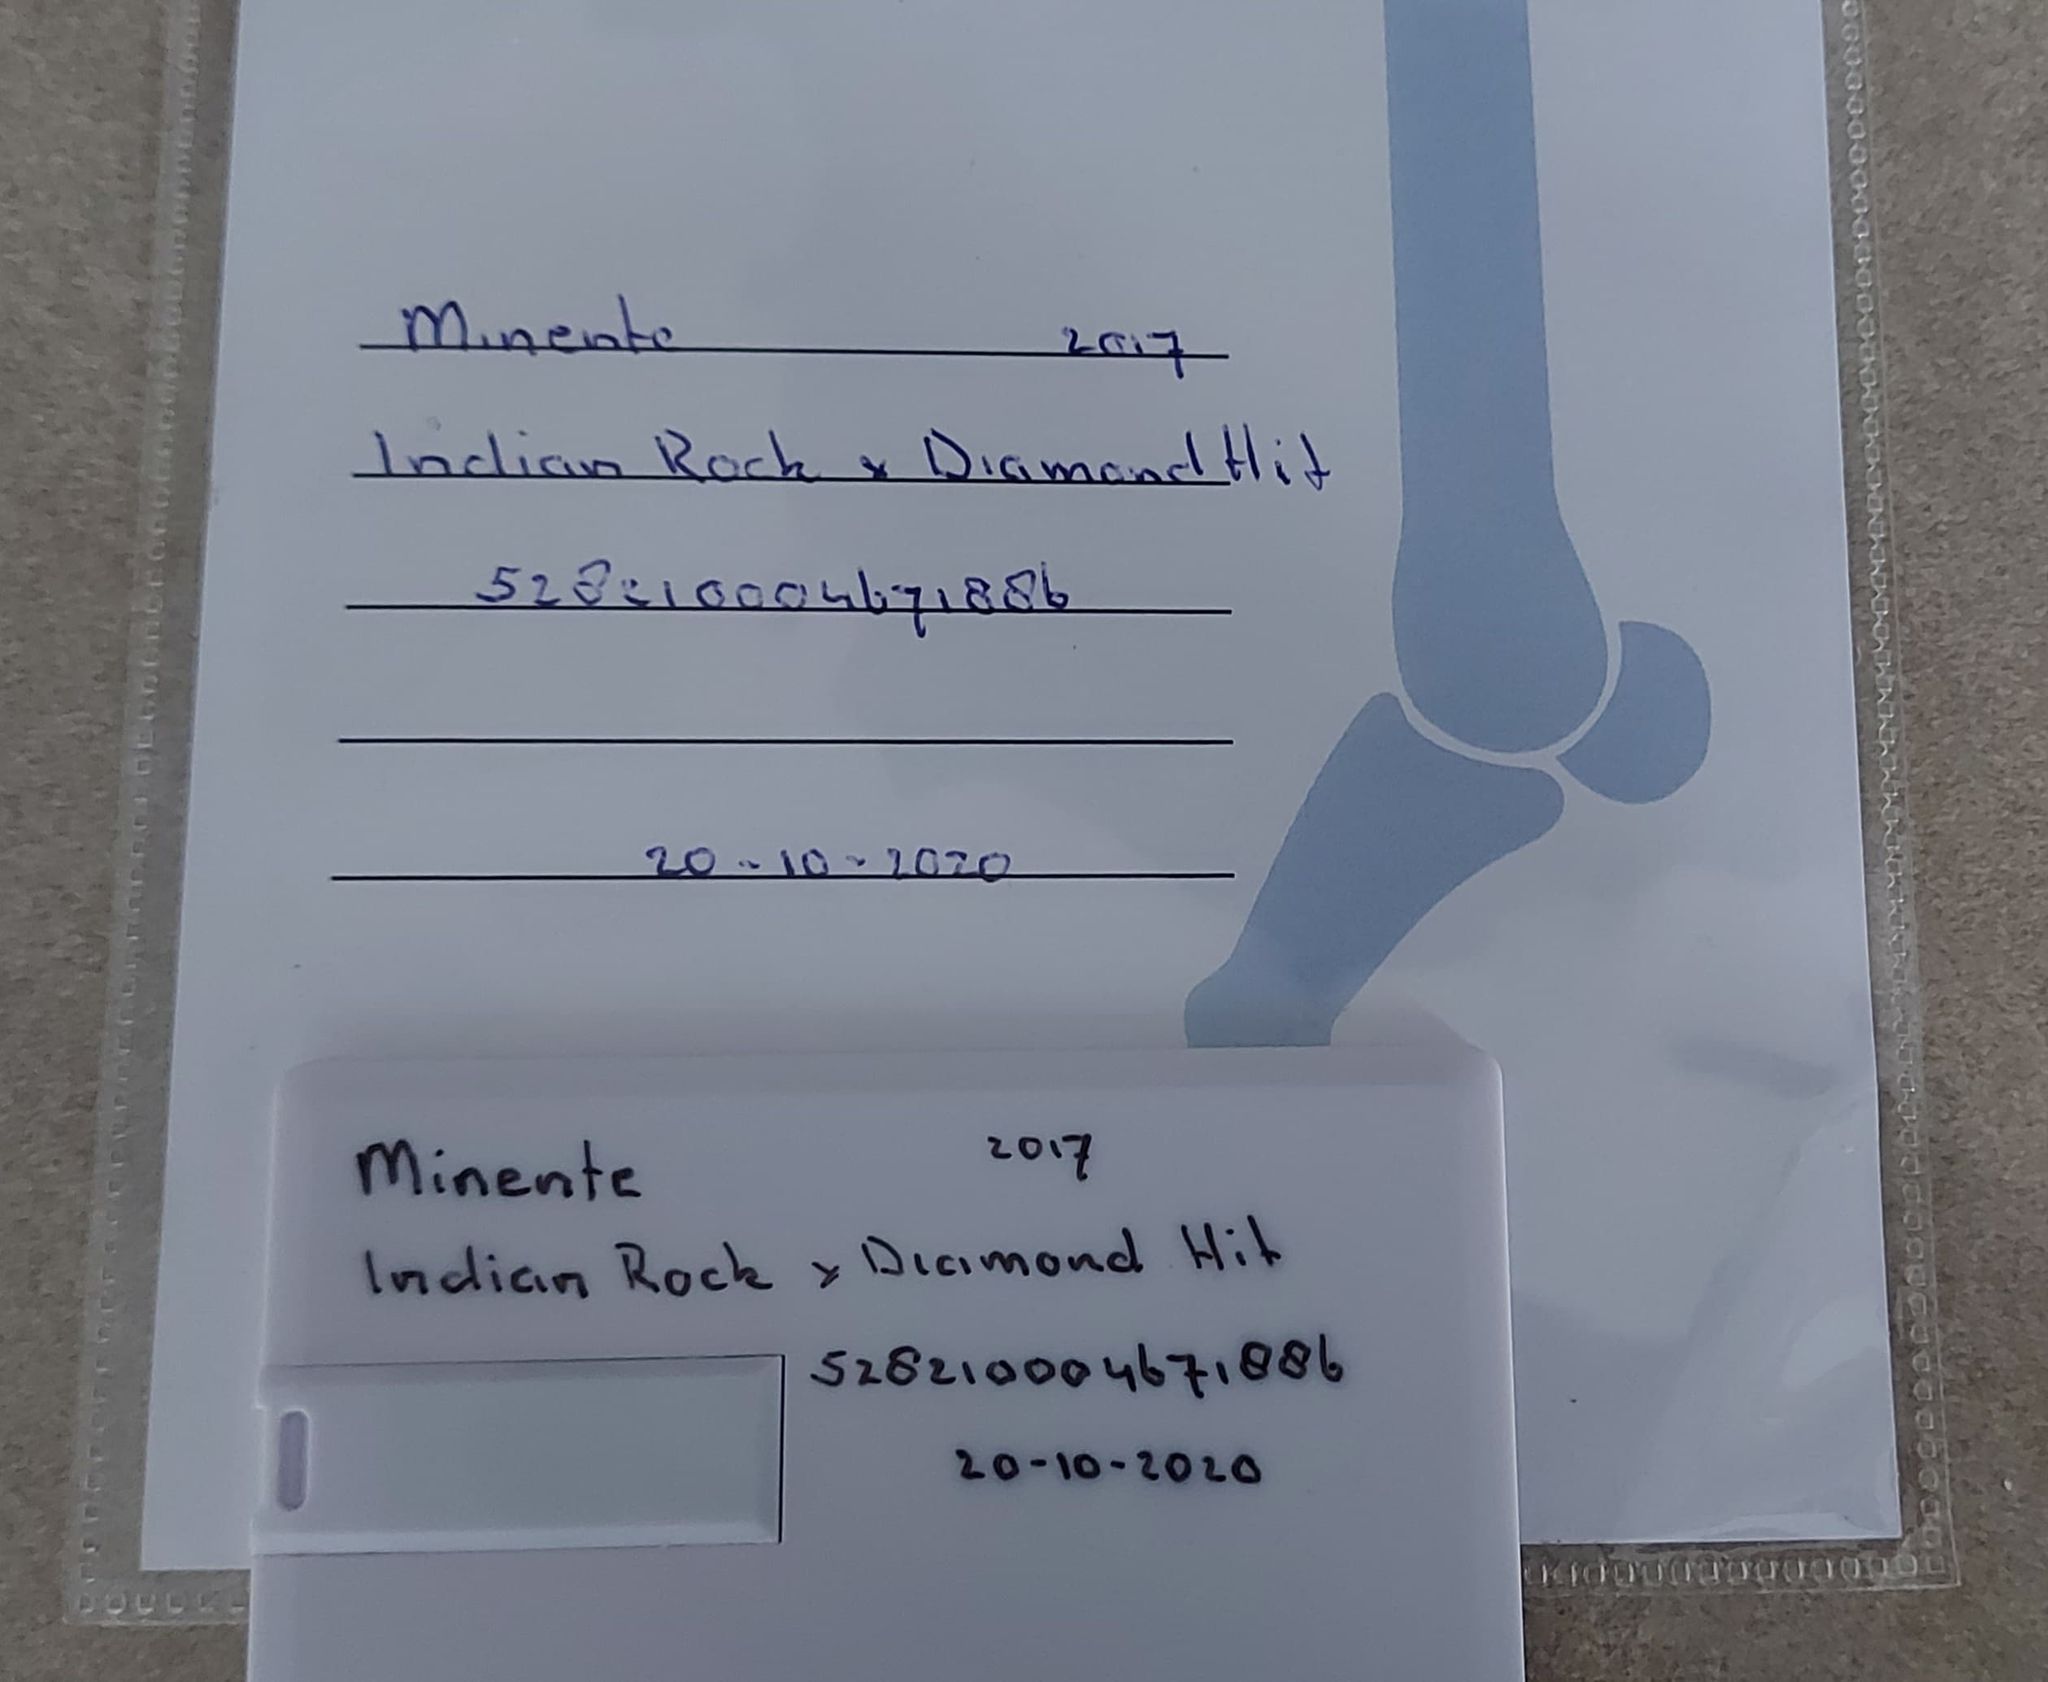 Minente 2017
Indian Rock x Diamond Hit
528210004671886
20-10-2020
Minente 2017
Indian Rock x Diamond Hit
528210004671886
20-10-2020